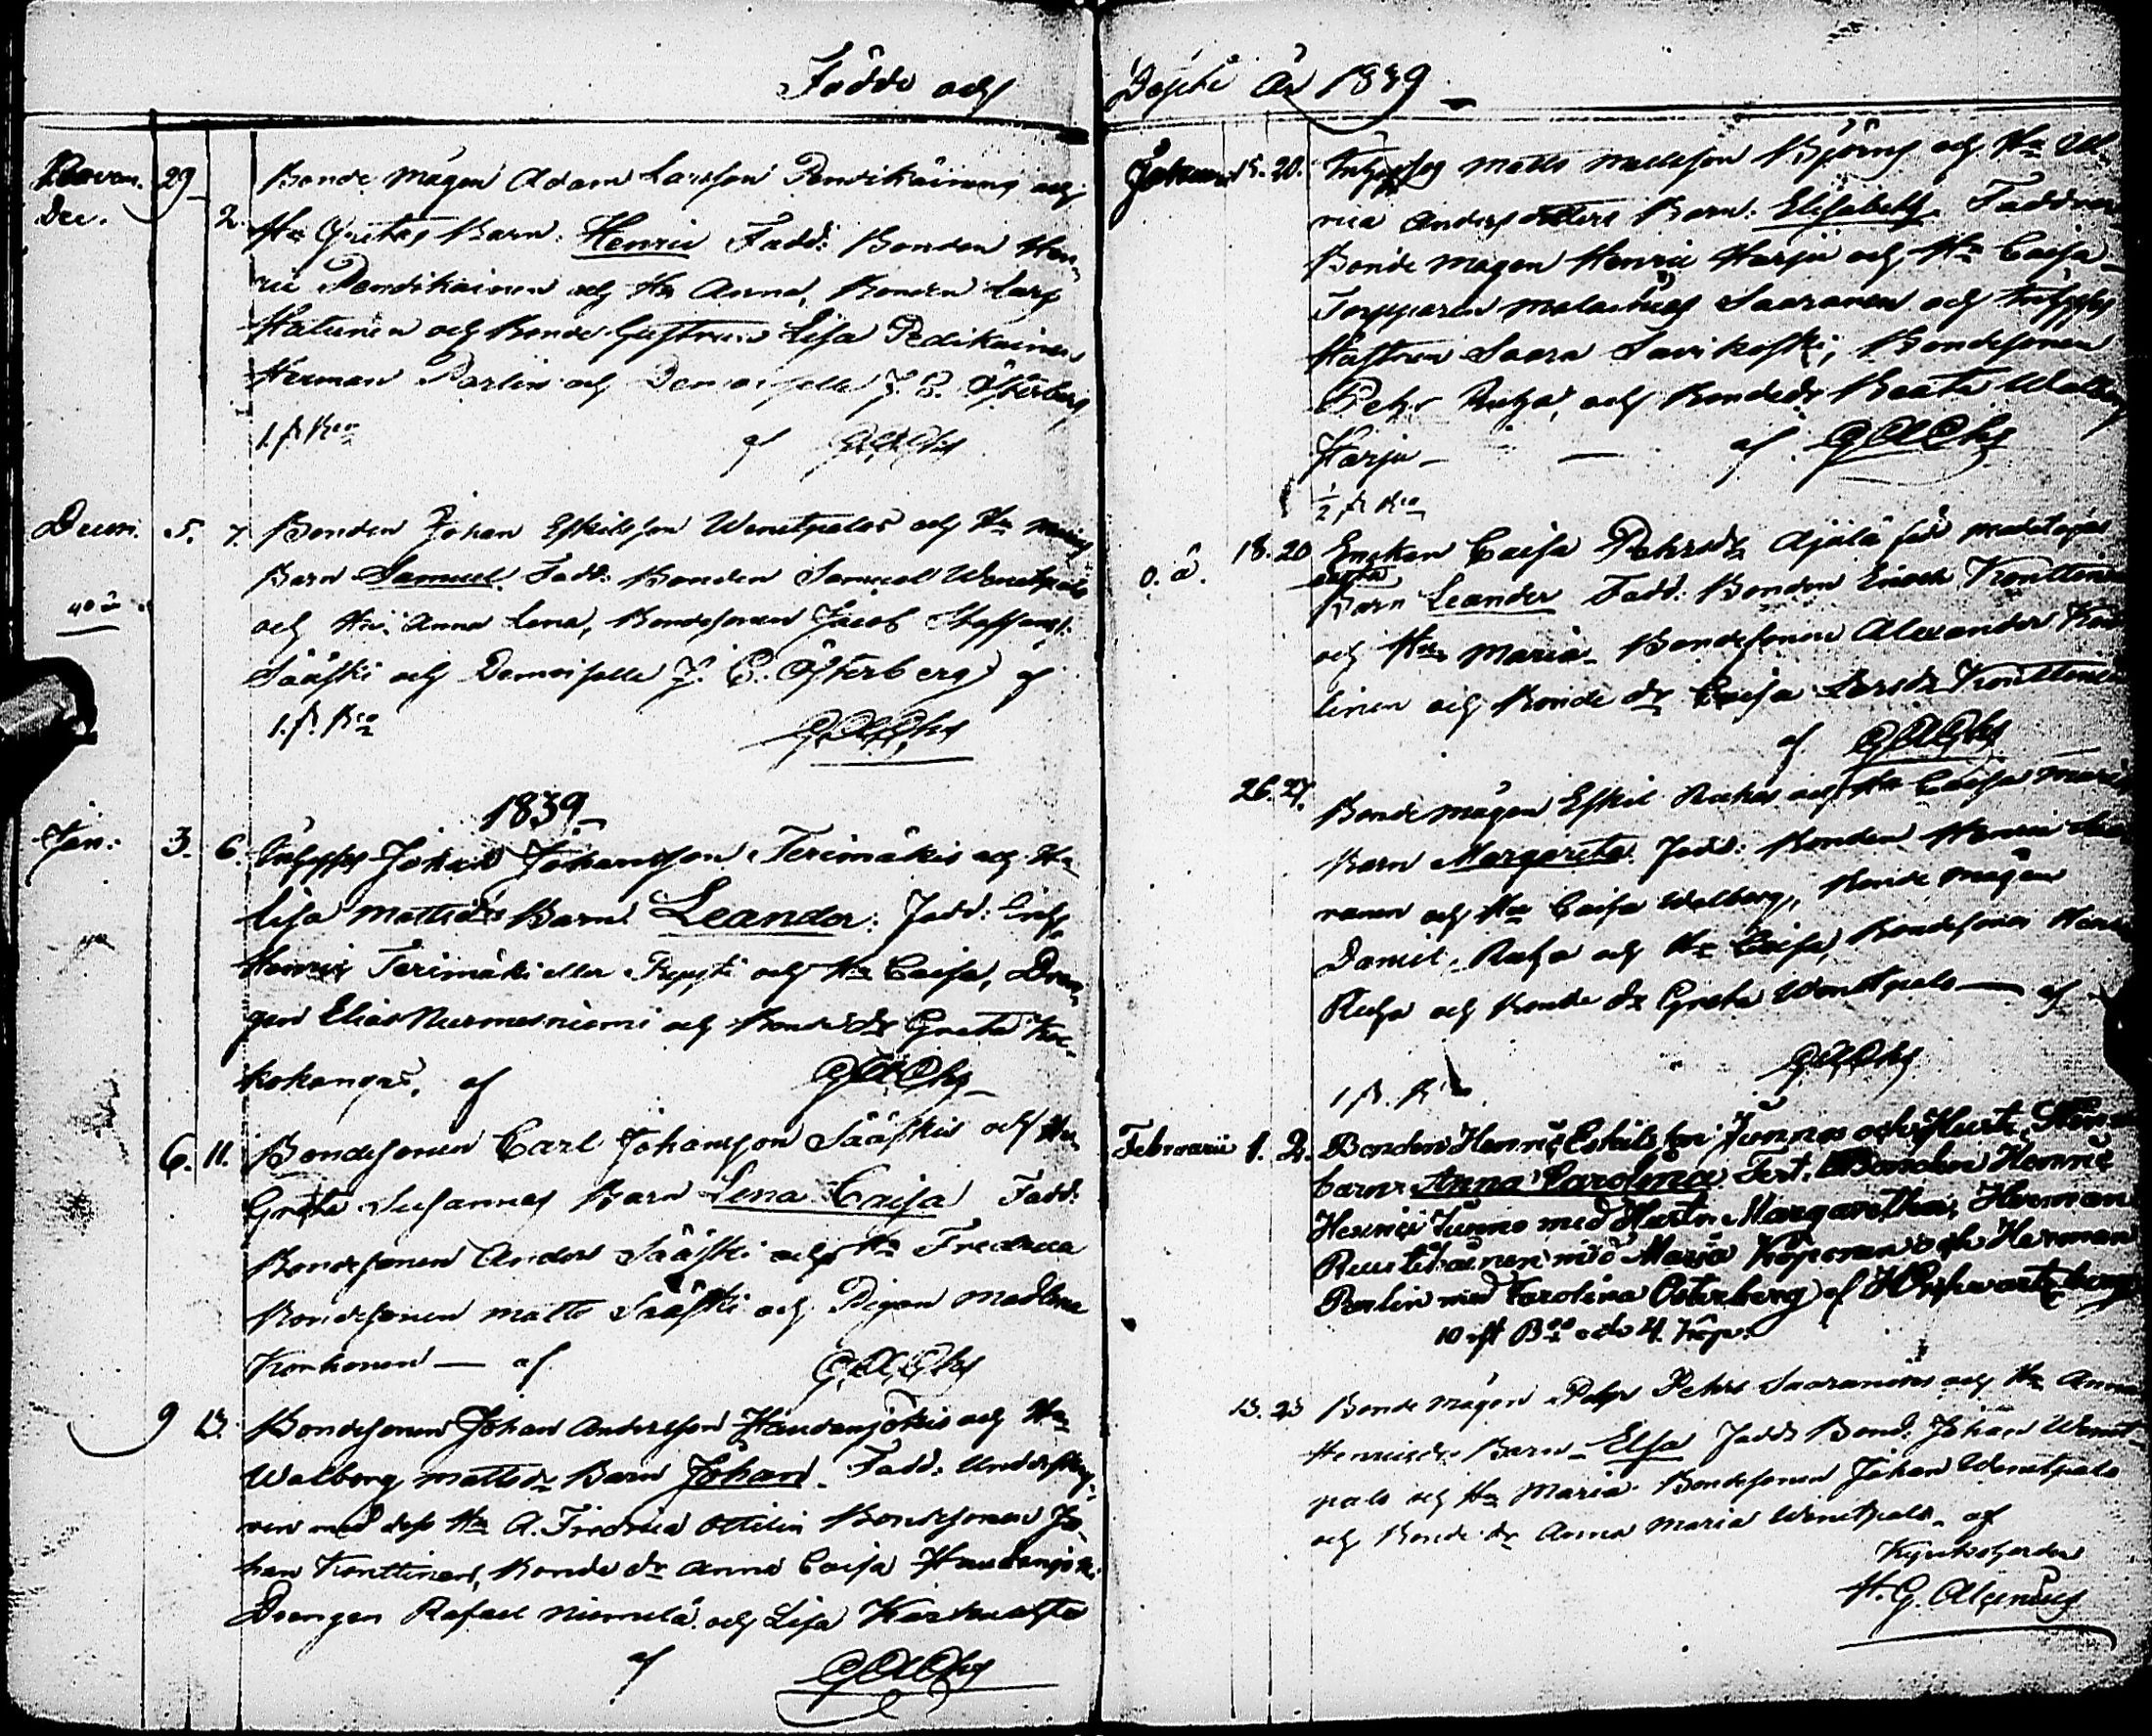 Födde och
Novem. 29. Bonde mågen Adam Larsson Pendikäinens och
Dec. 2. Hu Gretas Barn: Henric Fadd: Bonden Hen-
ric Pendikainen och Hu Anna, Bonden Lars
Hatunen och Bonde Lisa Pedikainen
Herman Parlin och Demoiselle J. C. Österberg
1. R. Bco af
Decem. 5. 7. Bonden Johan Eskilsson Wenetpalos och Hu
Barn Samuel. Fadd: Bonden Samuel Wenetpalo
och Hu. Anna Lena, Bondesonen Jacob
Sääski och Demoiselle J. C. Österberg af
1. R. Bco
1839.
Jan: 3. 6. Johan Johansson Terimäkis och Hu
Lisa Mattsdrs Barn Leander: Fadd: Inh:
Henric Terimäki eller och Hu Caisa, Dren-
gen Elias Nurmesniemi och Bonde dr Greta Koc-
kokangas. af
6. 11. Bondesonen Carl Johansson Sääskis och Hu
Greta Susannas Barn Lena Caisa Fadd:
Bondesonen Anders Sääski och Hu Fredrica
Bondesonen Matts Sääski och Pigan Madlena
Korhonen — af
9 13. Bondesonen Johan Andersson Haudanjokis och Hu
Walborg Mattsdr Barn Johan. Fadd:
med dess Hu A. Fredrica Ottilia Bondesonen Jo-
han Konttinen, Bonde dr Anna Caisa Haudanjoki
Drengen Rafael Niemelä och Lisa
af
Döpte År 1839
Januari 15. 20. Matts Mattsson Björns och Hu Ul-
rica Andersdotters Barn: Elisabeth. Faddrar
Bonde mågen Henric Harju och Hu Caisa
Torpparen Malachias Saaranen och
Hustrun Saara Savikoski, Bondesonen
Pehr Ruha, och Bondedr Beata Walborg
Harju — — af
1/2 R Bco
o. ä. 18. 20 Enckan Caisa Pehrsdr Ajälä
oägta
Barn Leander Fadd: Bonden Enoch Konttinen
och Hu Maria. Bondesonen Alexander Kont-
tinen och Bonde dr Caisa Larsdr Konttinen
af
26. 27. Bonde mågen Eskil Ruhas och Hu Caisa Marias
Barn Margareta. Fadd: Bonden Henric
ranen och Hu Caisa Walborg, Bonde mågen
Daniel Ruha och Hu Caisa, Bondesonen Henric
Ruha och Bonde dr Greta Wenetpalo — af
1 R.
Februarii 1. 2. Bonden Henric Eskilsson Junnos och Hustr.
barn Anna Carolina. Test. Bonden Henric
Henrics Junno med Hustr. Margaretha, Herman
med Maria Köponen och Herman
Parlin med Carolina Österberg af
10 st Bco och 4. kop.
13. 23 Bonde mågen Pehr Pehrs Saaranens och Hu Anna
Henricsdr Barn Elsa Fadd: Bond: Johan Wenet-
palo och Hu Maria. Bondesonen Johan Wenetpalo
och Bonde dr Anna Maria Wenetpalo. af
Kyrkoherden
H. G. Alcenius